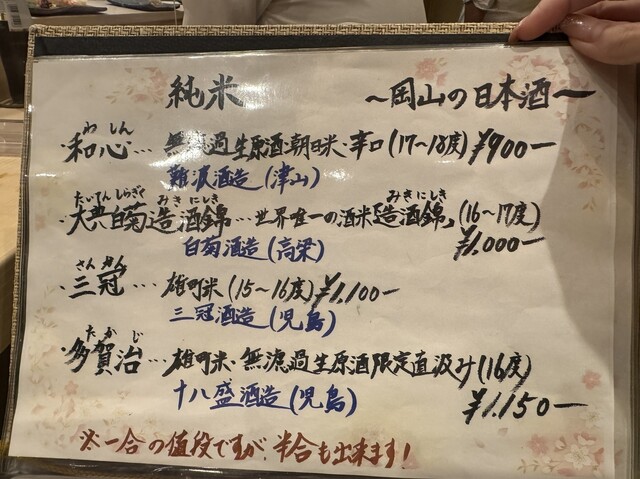 純米 ～岡山の日本酒～
わしん
・和心… 無濾過生原酒・朝日米・辛口(17～18度) ¥900-
難波酒造(津山)
たいてんしらぎく みきにしき みきにしき
・大典白菊造酒錦…世界唯一の酒米「造酒錦」(16～17度)
白菊酒造(高梁) ¥1.000-
さんかん
・三冠… 雄町米(15～16度) ¥1.100-
三冠酒造(児島)
たかじ
・多賀治…雄町米・無濾過生原酒限定直汲み(16度)
十八盛酒造(児島) ¥1.150-
※一合の値段ですが、半合も出来ます!